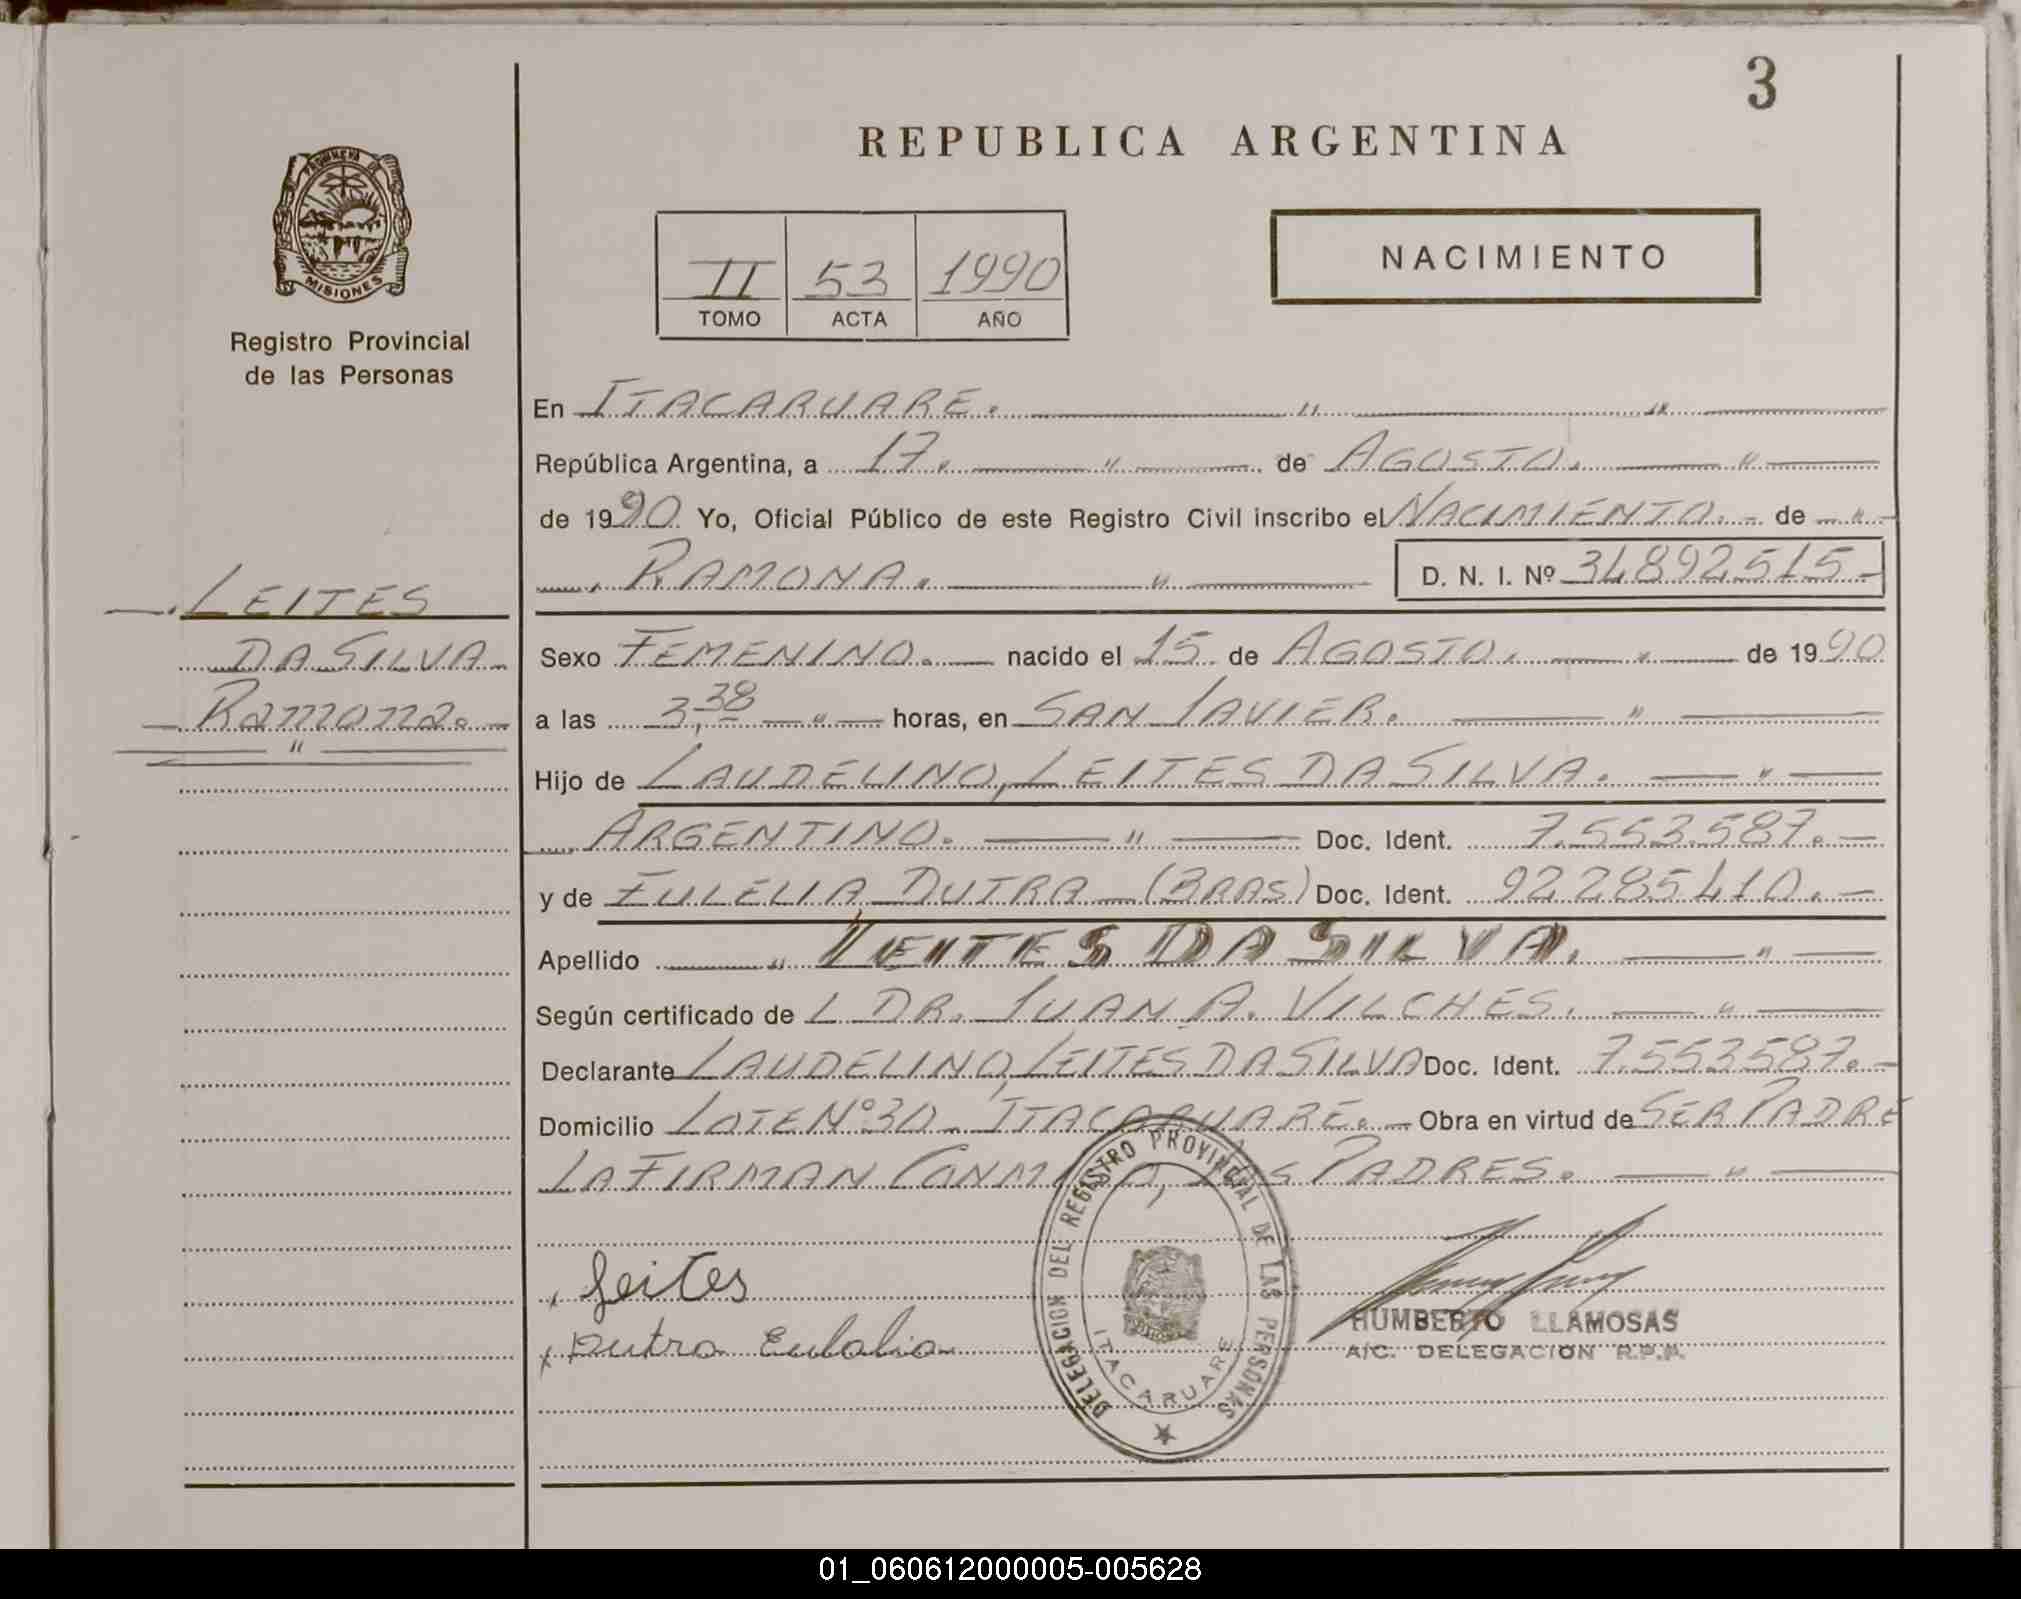 3
REPUBLICA ARGENTINA
PROVINCIA DE
MISIONES
Registro Provincial
de las Personas
II 53 1990
TOMO ACTA AÑO
NACIMIENTO
En ITACARUARE.
República Argentina, a 17. de AGOSTO.
de 1990 Yo, Oficial Público de este Registro Civil inscribo el NACIMIENTO. de
RAMONA. D. N. I. Nº 34892515
LEITES
DA SILVA
Ramona.
Sexo FEMENINO. nacido el 15 de AGOSTO. de 1990
a las 3,38 horas, en SAN JAVIER.
Hijo de LAUDELINO, LEITES DA SILVA.
ARGENTINO. Doc. Ident. 7.553.587.
y de EULELIA, DUTRA (BRAS) Doc. Ident. 92285410.
Apellido LEITES DA SILVA.
Según certificado de L DR. JUAN A. VILCHES.
Declarante LAUDELINO, LEITES DA SILVA Doc. Ident. 7.553587.
Domicilio LOTE Nº 30 - ITACARUARE. Obra en virtud de SER PADRE
LA FIRMAN CONMIGO, LOS PADRES.
x Leites
x Dutra Eulalia
DELEGACION DEL REGISTRO PROVINCIAL DE LAS PERSONAS
ITACARUARE
HUMBERTO LLAMOSAS
A/C. DELEGACION R.P.P.
01_060612000005-005628